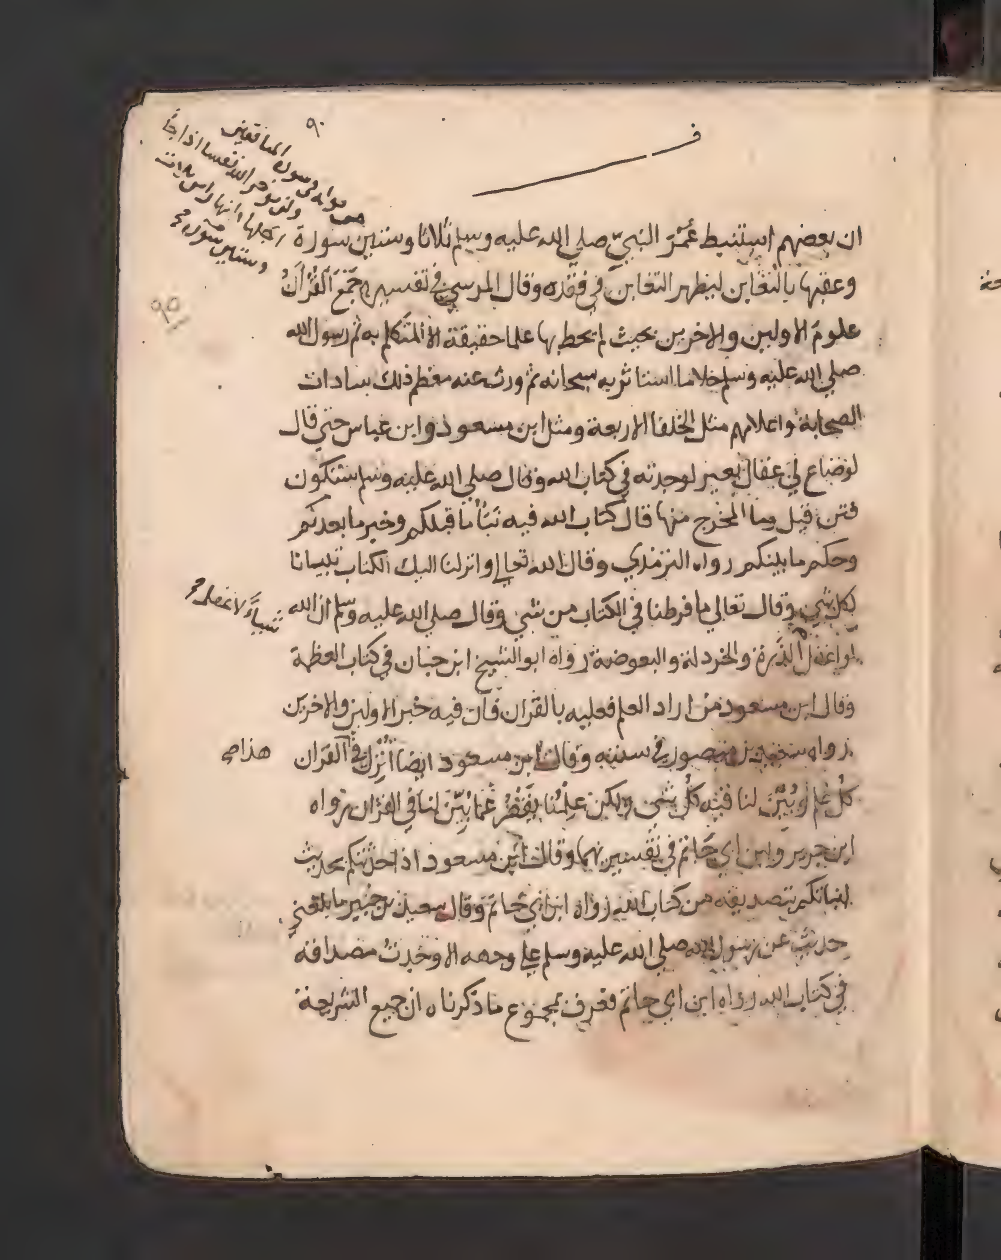 ٩٠
من قوله في سورة المنافقين
ولن يؤخر الله نفسا اذا جا
اجلها فانها راس ثلاث
وستين سورة
ان بعضهم استنبط عُمْرَ النبيّ صلي الله عليه وسلم ثلاثا وستين سورة
وعقبها بالتغابن ليظهر التغابن في فقده وقال المرسي في تفسيره جَمَعَ القُرآنُ
علومَ الاولين والاخرين بحيث لم يحط بها علما حقيقة الا المتكلم به ثم رسول الله
صلي الله عليه وسلم خلا ما استاثر به سبحانه ثم ورث عنه معظم ذلك سادات
الصحابة واعلامهم مثل الخلفا الاربعة ومثل ابن مسعود وابن عباس حتي قال
لو ضاع لي عقال بعير لوجدته في كتاب الله وقال صلي الله عليه وسلم ستكون
فتن قيل وما المخرج منها قال كتاب الله فيه نبأ ما قبلكم وخبر ما بعدكم
وحكم ما بينكم رواه الترمذي وقال الله تعالي وانزلنا اليك الكتاب تبيانا
لكل شي وقال تعالي ما فرطنا في الكتاب من شي وقال صلي الله عليه وسلم ان الله
شيأً لاغفل
لو اغفل الذَّرة والخردلة والبعوضة رواه ابو الشيخ ابن حبان في كتاب العظمة
وقال ابن مسعود من اراد العلم فعليه بالقران فان فيه خبر الاولين والاخرين
رواه سعيد بن منصور في سننه وقال ابن مسعود ايضا أُنزِل في القران
هذا
كلُّ علم وبُيّن لنا فيه كلُّ شي ولكن عِلمُنا يقصُرُ عما بُيّن لنا في القران رواه
ابن جرير وابن ابي حاتم في تفسيريهما وقال ابن مسعود اذا حدثتكم بحديث
انباتكم بتصديقه من كتاب الله رواه ابن ابي حاتم وقال سعيد بن جبير ما بلغني
حديث عن رسول الله صلي الله عليه وسلم علي وجهه الا وجدتُ مصداقه
في كتاب الله رواه ابن ابي حاتم فعرف بمجموع ما ذكرناه ان جميع الشريعة